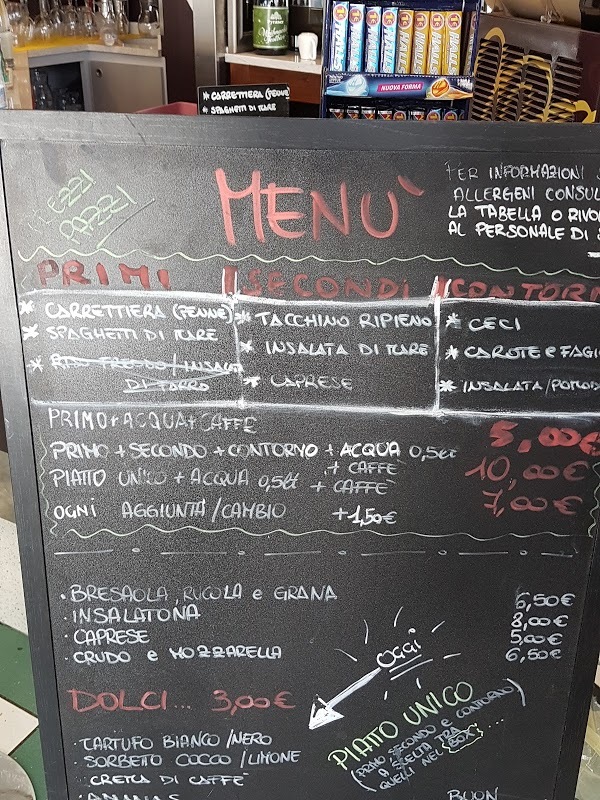 HALLS
NUOVA FORMA
* CARRETTIERA (PENNE)
* SPAGHETTI DI MARE
PREZZI
PAZZI
MENU'
PER INFORMAZIONI
ALLERGENI CONSUL
LA TABELLA O RIVO
AL PERSONALE DI
PRIMI
* CARRETTIERA (PENNE)
* SPAGHETTI DI MARE
* RISO FREDDO / INSALATA
DI FARRO
SECONDI
* TACCHINO RIPIENO
* INSALATA DI MARE
* CAPRESE
CONTORN
* CECI
* CAROTE e FAGI
* INSALATA/POMOD
PRIMO + ACQUA + CAFFE' 5,00€
PRIMO + SECONDO + CONTORNO + ACQUA 0,5lt
+ CAFFE' 10,00€
PIATTO UNICO + ACQUA 0,5lt + CAFFE' 7,00€
OGNI AGGIUNTA/CAMBIO +1,50€
· BRESAOLA, RUCOLA e GRANA 6,50€
· INSALATONA 8,00€
· CAPRESE 5,00€
· CRUDO e MOZZARELLA 6,50€
OGGI
DOLCI... 3,00€
· TARTUFO BIANCO/NERO
· SORBETTO COCCO/LIMONE
· CREMA DI CAFFE'
· ANANAS
PIATTO UNICO
(PRIMO SECONDO e CONTORNO)
A SCELTA TRA
QUELLI NEL BOX....
BUON